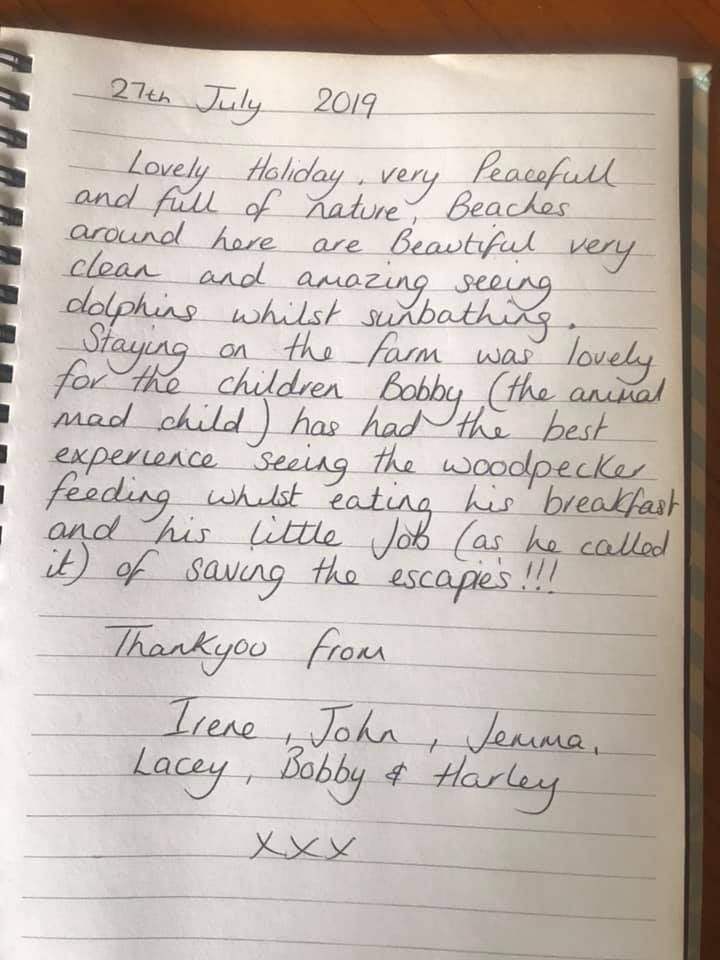 27th July 2019
Lovely Holiday, very Peacefull
and full of nature, Beaches
around here are Beautiful very
clean and amazing seeing
dolphins whilst sunbathing.
Staying on the farm was lovely
for the children Bobby (the animal
mad child) has had the best
experience seeing the woodpecker
feeding whilst eating his breakfast
and his little Job (as he called
it) of saving the escapies!!!
Thankyou from
Irene, John, Jemma,
Lacey, Bobby & Harley
xxx